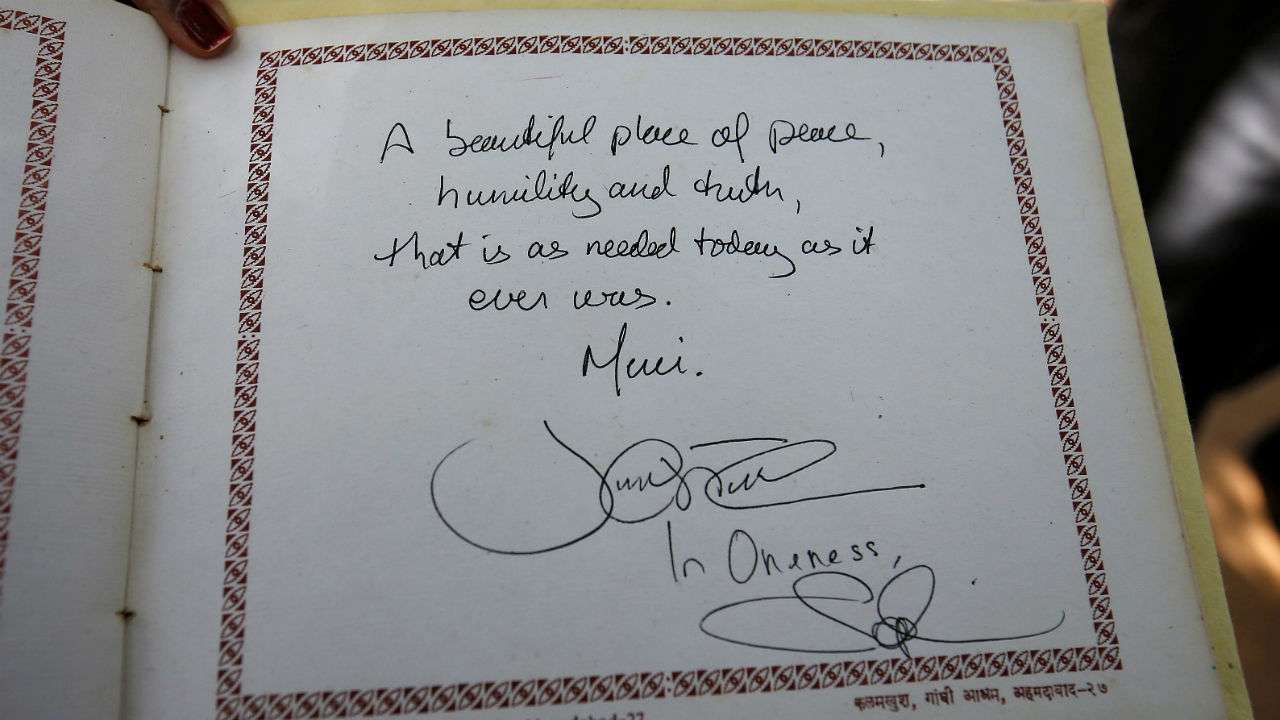 A beautiful place of peace,
humility and truth,
that is as needed today as it
ever was.
Merci.
In Oneness,
कलमखुश, गांधी आश्रम, अहमदाबाद-२७